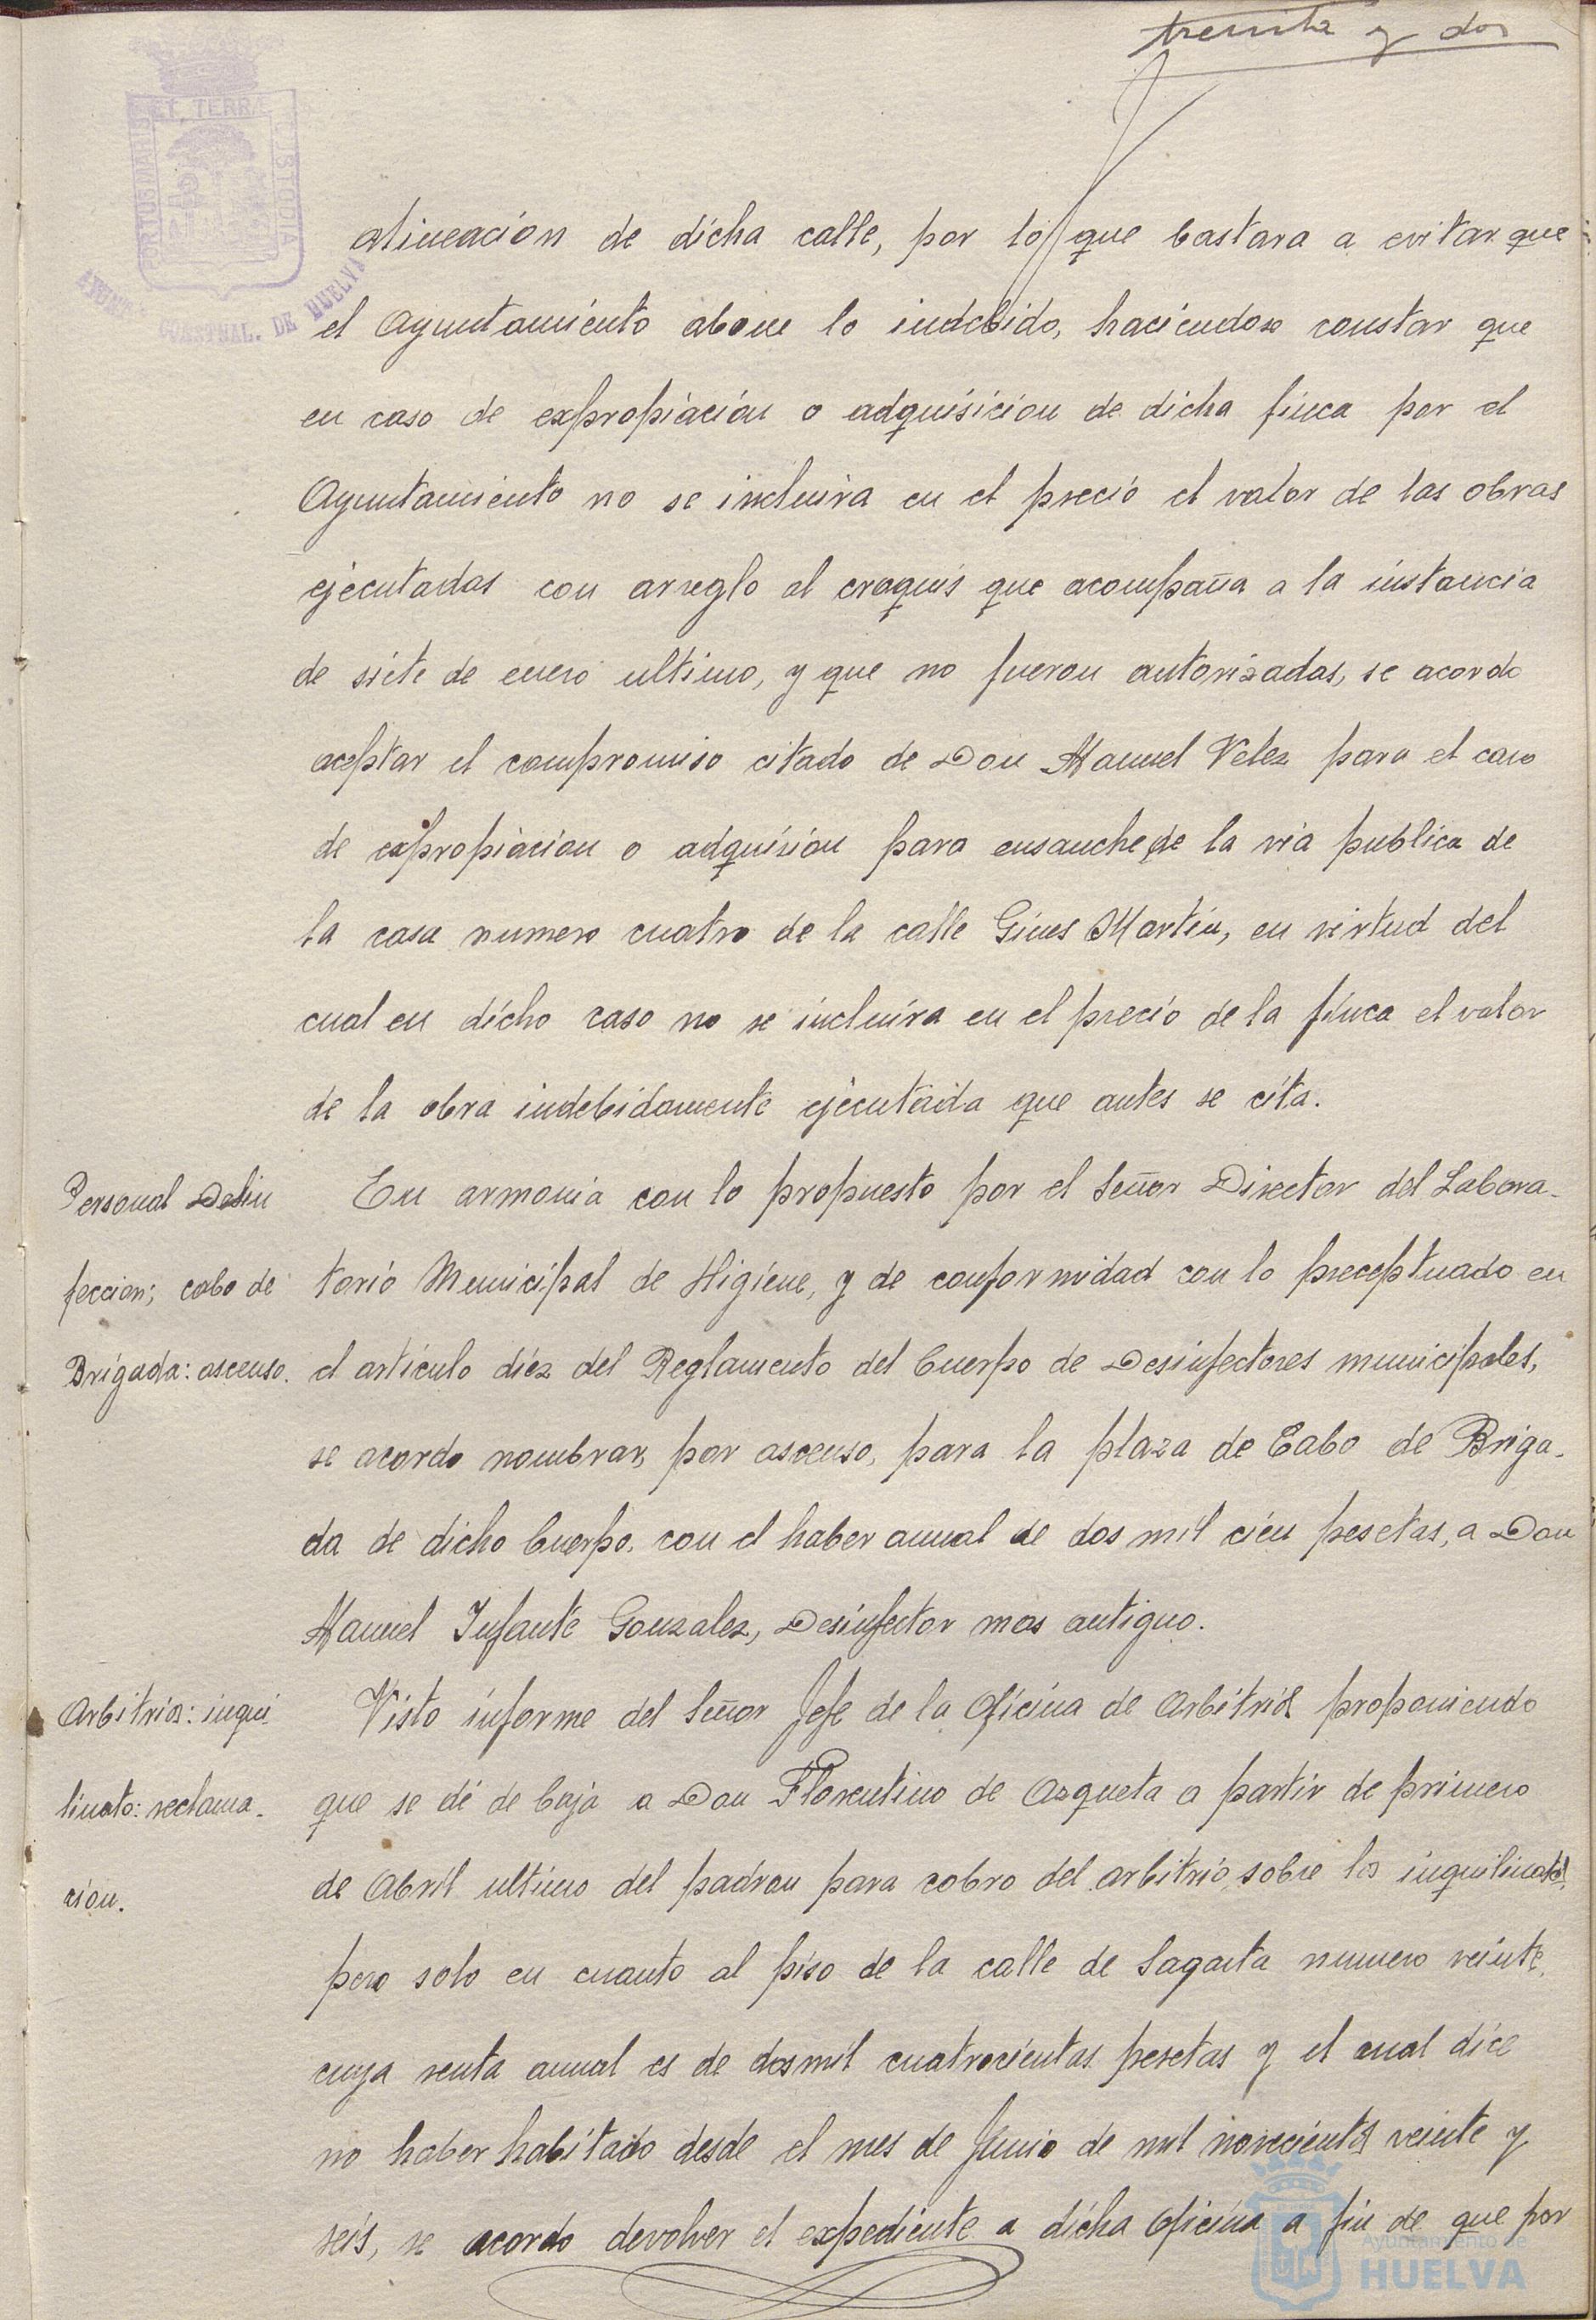 treinta y dos
ET TERRÆ
PORTUS MARIS
CUSTODIA
AYUNTº CONSTNAL. DE HUELVA
alineación de dicha calle, por lo que bastara a evitar que
el Ayuntamiento abone lo indebido, haciendose constar que
en caso de expropiación o adquisicion de dicha finca por el
Ayuntamiento no se incluira en el precio el valor de las obras
ejecutadas con arreglo al croquis que acompaña a la instancia
de siete de enero ultimo, y que no fueron autorizadas, se acordo
aceptar el compromiso citado de Don Manuel Velez para el caso
de expropiacion o adquision para ensanche de la via publica de
la casa numero cuatro de la calle Gines Martin, en virtud del
cual en dicho caso no se incluira en el precio de la finca el valor
de la obra indebidamente ejecutada que antes se cita.
Personal Desin
feccion; cabo de
Brigada: ascenso.
En armonia con lo propuesto por el Señor Director del Labora-
torio Municipal de Higiene, y de conformidad con lo preceptuado en
el articulo diez del Reglamento del Cuerpo de Desinfectores municipales,
se acordo nombrar, por ascenso, para la plaza de Cabo de Briga-
da de dicho Cuerpo, con el haber anual de dos mil cien pesetas, a Don
Manuel Infante Gonzalez, Desinfector mas antiguo.
Arbitrios: inqui-
linato: reclama-
cion.
Visto informe del Señor Jefe de la Oficina de Arbitrios proponiendo
que se dé de baja a Don Florentino de Azqueta a partir de primero
de Abril ultimo del padron para cobro del arbitrio sobre los inquilinatos,
pero solo en cuanto al piso de la calle de Sagasta numero veinte,
cuya renta anual es de dos mil cuatrocientas pesetas y el cual dice
no haber habitado desde el mes de Junio de mil novecientos veinte y
seis, se acordo devolver el expediente a dicha Oficina a fin de que por
Ayuntamiento de
HUELVA